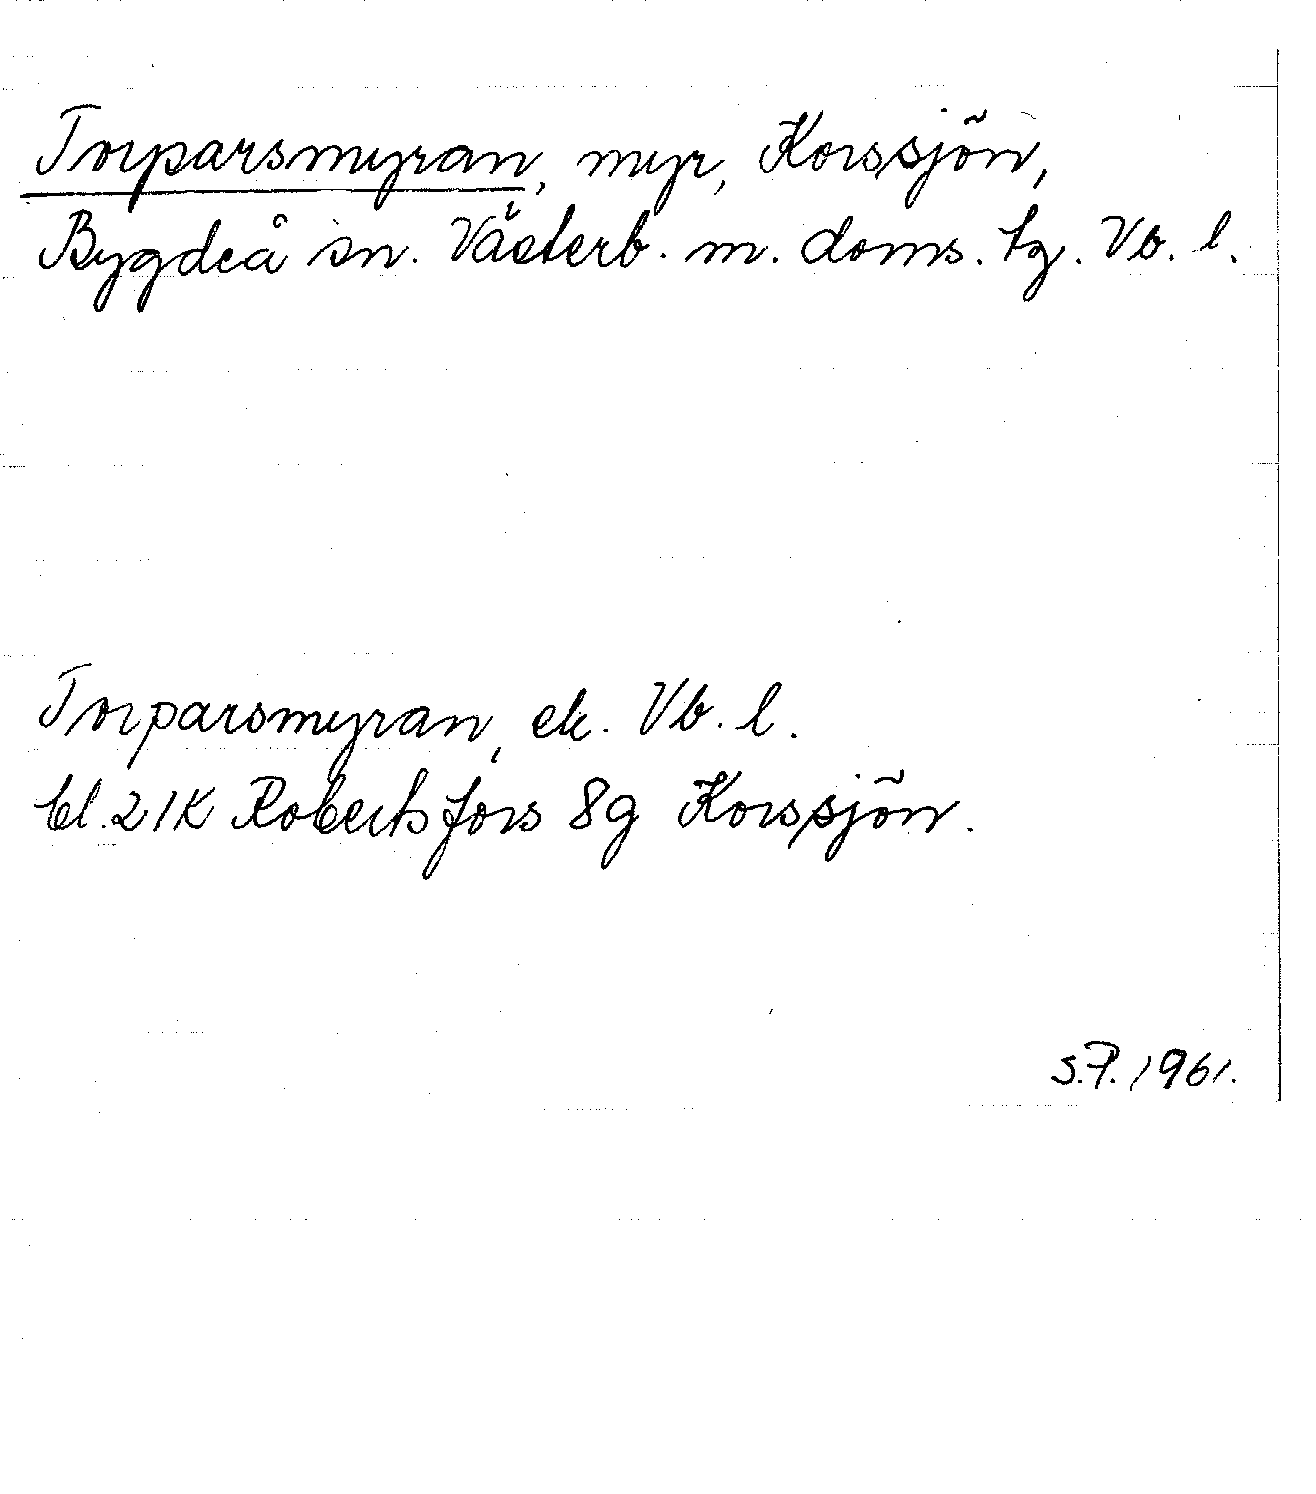 Torparsmyran, myr, Korssjön,
Bygdeå sn. Västerb. m. doms. tg. Vb. l.
Torparsmyran, ek. Vb. l.
bl. 21K Robertsfors 8g Korssjön.
S.P. 1961.